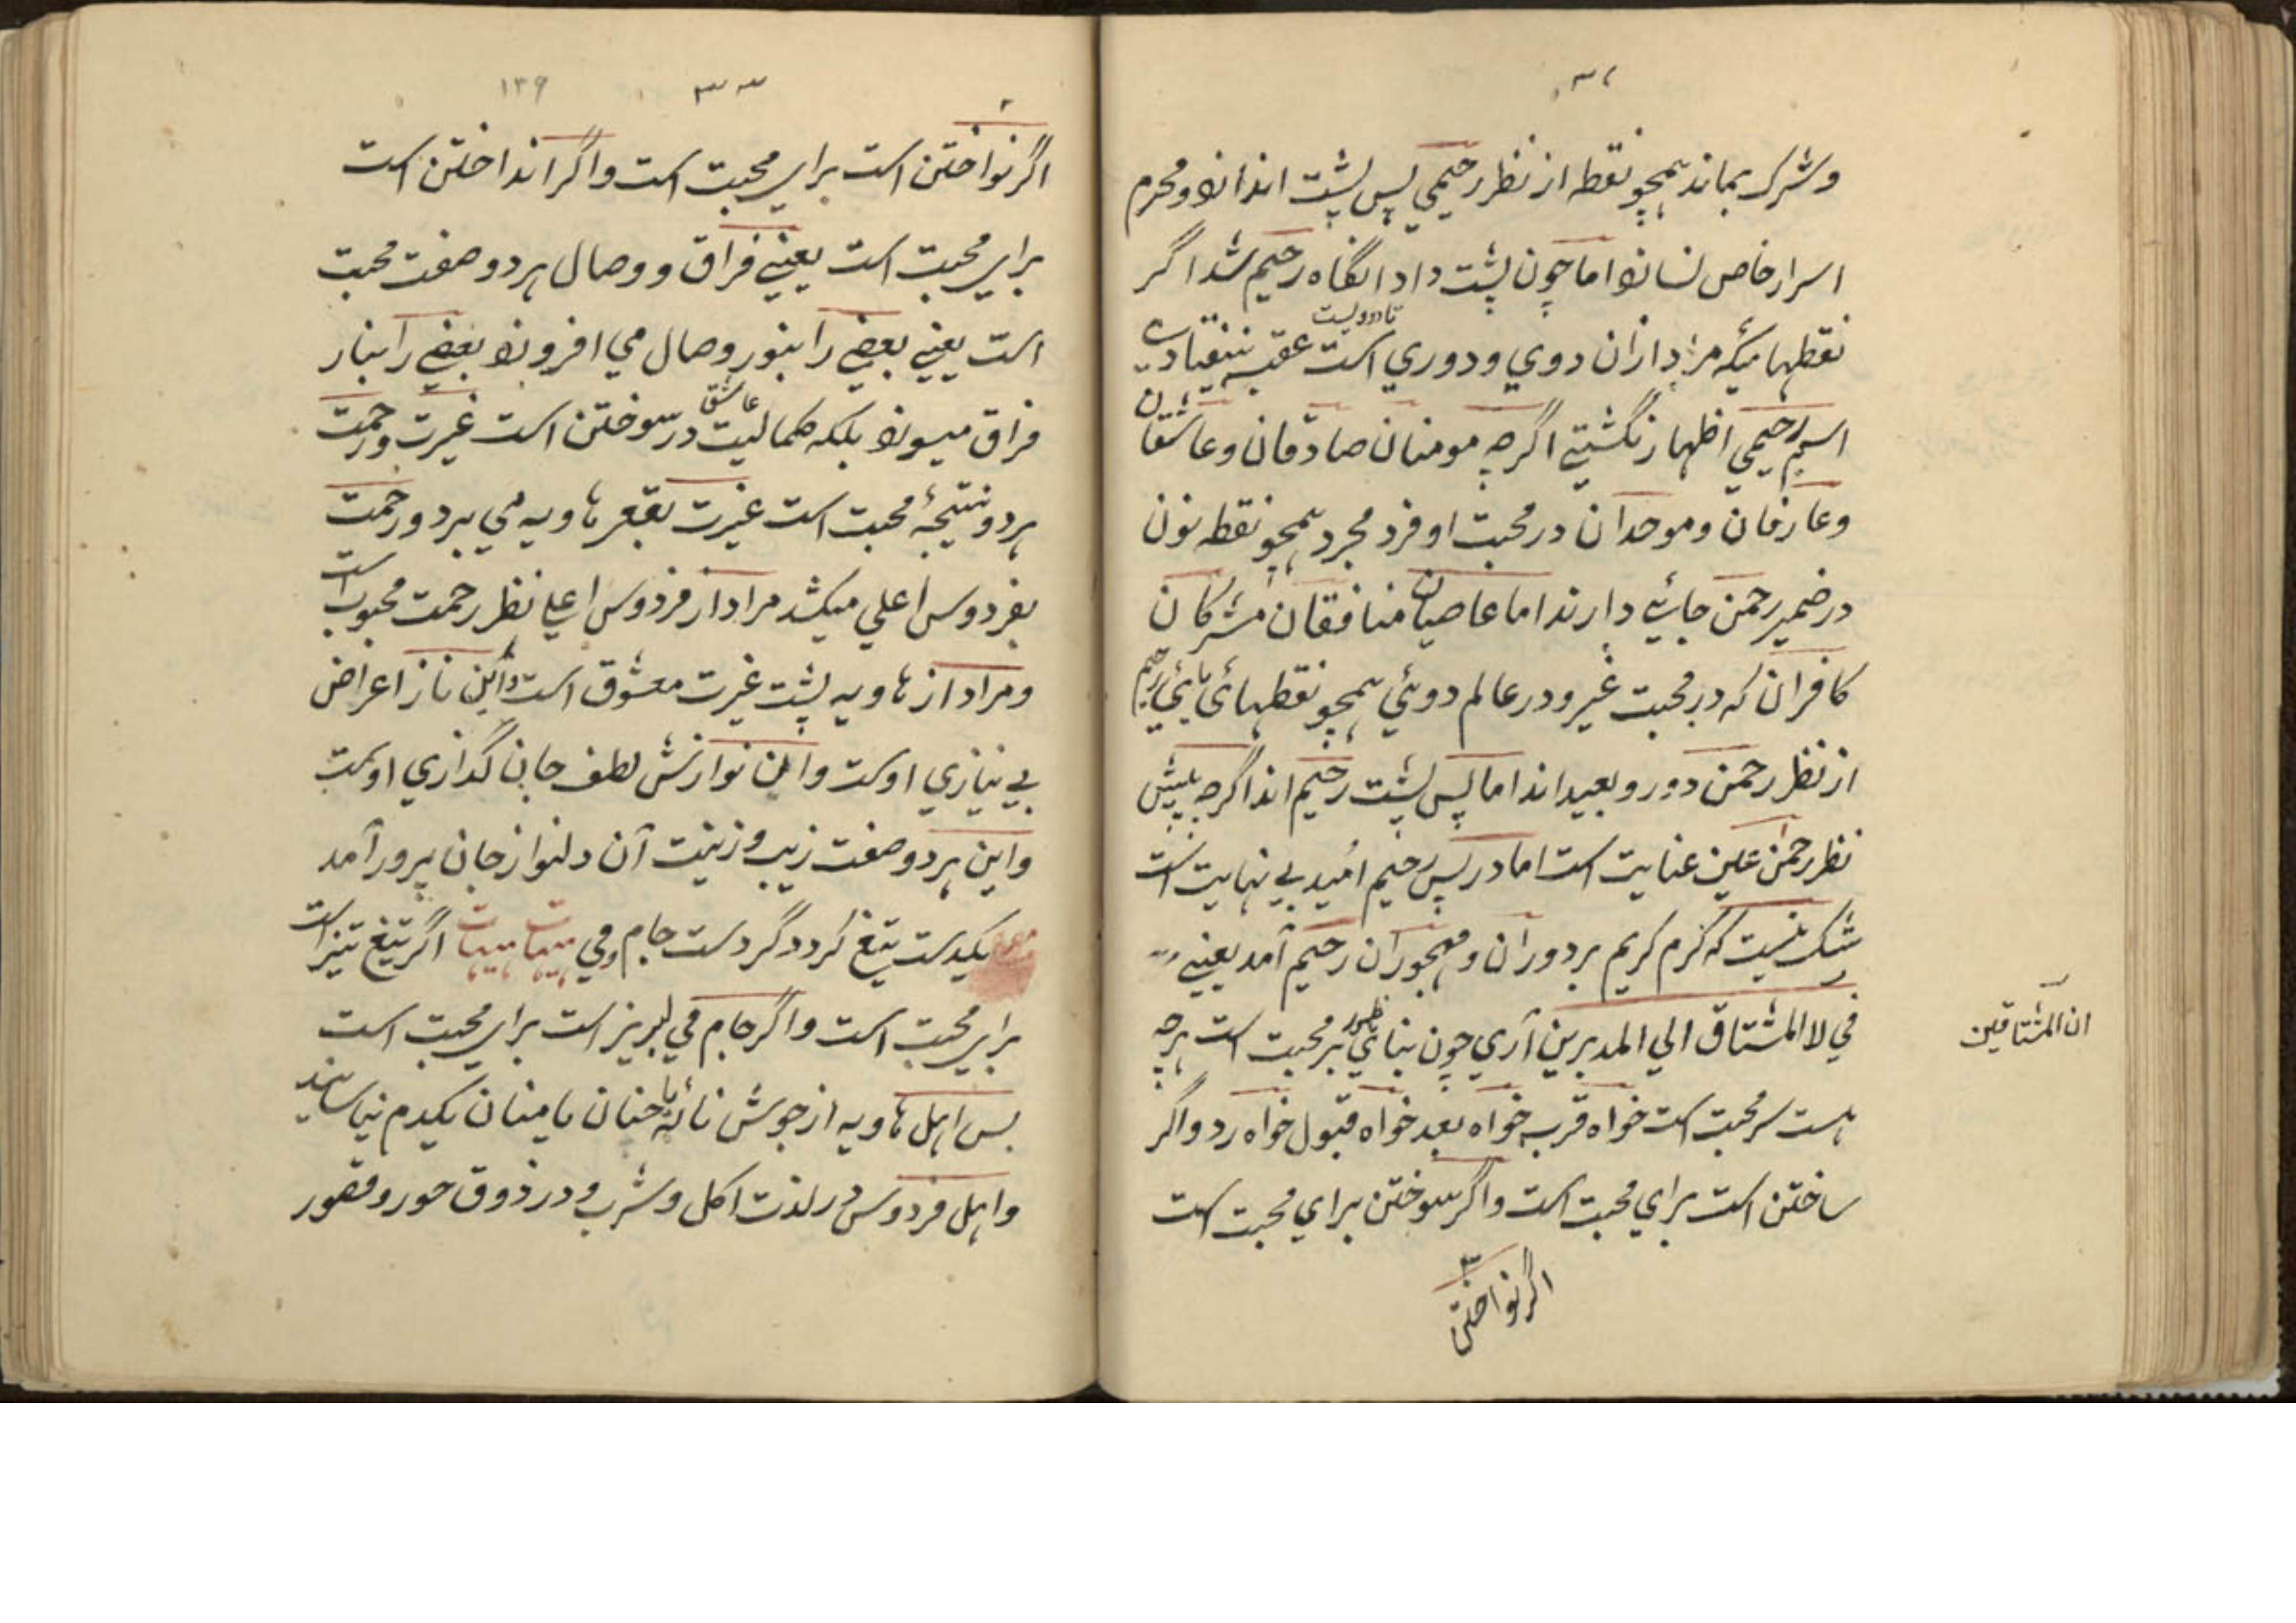 ۳۲
و شرک بماند همچو نقطه از نظر رحیمی پس پشت اندازد و محرم
اسرار خاص نسازد اما چون پشت داد انگاه رحیم شد اگر
نقطهائیکه مراد ازان دوي و دوري است عقب نیفتادي
تا دو یست
اسم رحیمی اظهار نگشتي اگرچه مومنان صادقان و عاشقان
و عارفان و موحدان در محبت او فرد مجرد همچو نقطه نون
در ضمیر رحمن جائي دارند اما عاصیان منافقان مشرکان
کافران که در محبت غیر و در عالم دوئي همچو نقطهائ یائي رحیم
از نظر رحمن دور و بعید اند اما پس پشت رحیم اند اگرچه پیش
نظر رحمن عین عنایت است اما در پس رحیم امید بي نهایت است
شک نیست که کرم کریم بر دوران و مهجوران رحیم آمد یعني
في لا المشتاق الي المدبرین آري چون بنائي ظهور بر محبت است هرچه
ان المشتاقین
هست سر محبت است خواه قرب خواه بعد خواه قبول خواه رد و اگر
ساختن است براي محبت است و اگر سوختن براي محبت است
اگر نواختن
۳۳
۱۳۹
اگر نواختن است براي محبت است و اگر انداختن است
براي محبت است یعني فراق و وصال هر دو صفت محبت
است یعني بعضي را بنور وصال مي افروزد بعضي را بنار
فراق میسوزد بلکه کمالیت عاشق در سوختن است غیرت و رحمت
هر دو نتیجۀ محبت است غیرت بقعر هاویه مي برد و رحمت
بفردوس اعلي میکشد مراد از فردوس اعلي نظر رحمت محبوب است
و مراد از هاویه پشت غیرت معشوق است و این ناز اعراض
بي نیازي اوست و این نوازش لطف جان گدازي اوست
و این هر دو صفت زیب و زینت آن دلنواز جان پرور آمد
بیکدست تیغ کرد دگر دست جام و مي هیهات هیهات اگر تیغ تیز است
براي محبت است و اگر جام مي لبریز است براي محبت است
پس اهل هاویه از جوش یا حنان یا منان یکدم نیاسایند
و اهل فردوس در لذت اکل و شرب و در ذوق حور و قصور